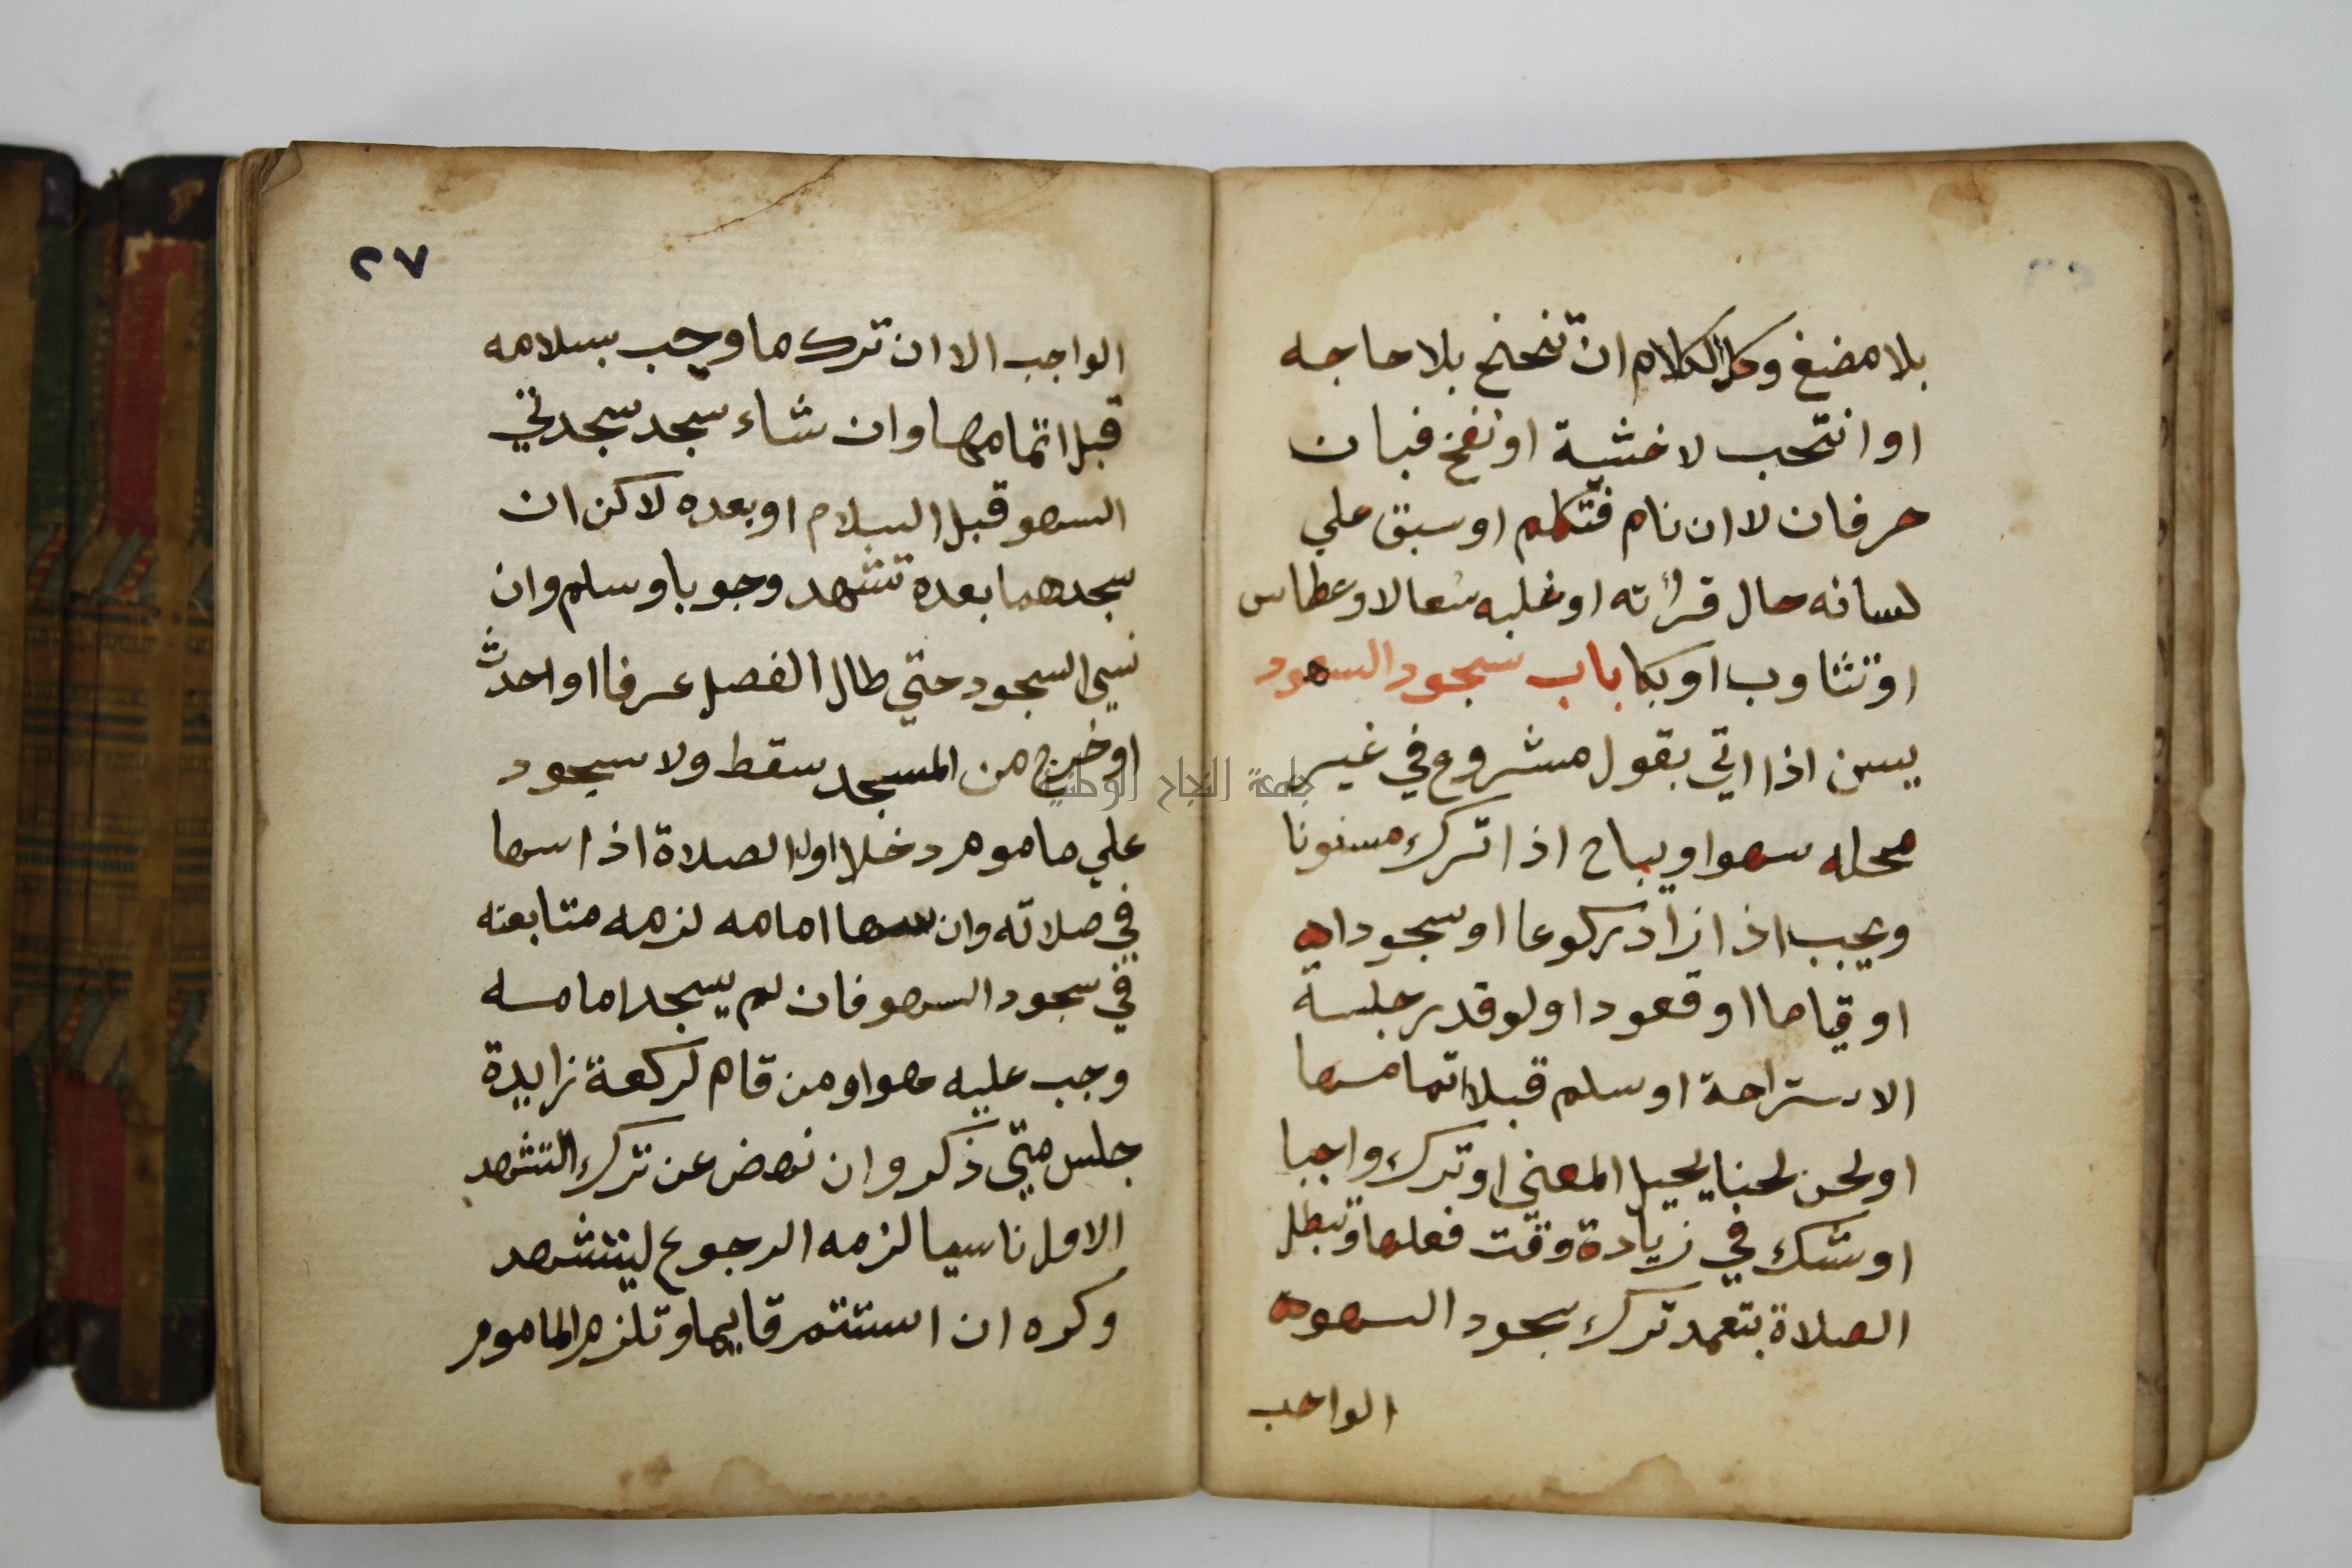 بلا مضغ وكالكلام ان تنحنح بلا حاجه
او انتحب لا خشية او نفخ فبان
حرفان لا ان نام فتكلم او سبق علي
لسانه حال قرأته او غلبه سعالا وعطاس
او تثاوب او بكا باب سجود السهو
يسن اذا اتي بقول مشروع في غير
محله سهوا ويباح اذا ترك مسنونا
ويجب اذا زاد ركوعا او سجودا
او قياما او قعودا ولو قدر جلسة
الاستراحة او سلم قبل اتمامها
او لحن لحنا يحيل المعني او ترك واجبا
او شك في زيادة وقت فعلها وتبطل
الصلاة بتعمد ترك سجود السهو
الواجب
٢٧
الواجب الا ان ترك ما وجب بسلامه
قبل اتمامها وان شاء سجد سجدتي
السهو قبل السلام او بعده لاكن ان
سجدهما بعده تشهد وجوبا وسلم وان
نسي السجود حتي طال الفصل عرفا او احدث
او خرج من المسجد سقط ولا سجود
علي ماموم دخل اول الصلاة اذا سها
في صلاته وان سها امامه لزمه متابعته
في سجود السهو فان لم يسجد امامه
وجب عليه هو ومن قام لركعة زايدة
جلس متي ذكر وان نهض عن ترك التشهد
الاول ناسيا لزمه الرجوع ليتشهد
وكره ان استتم قايما وتلزم الماموم
جامعة النجاح الوطنية